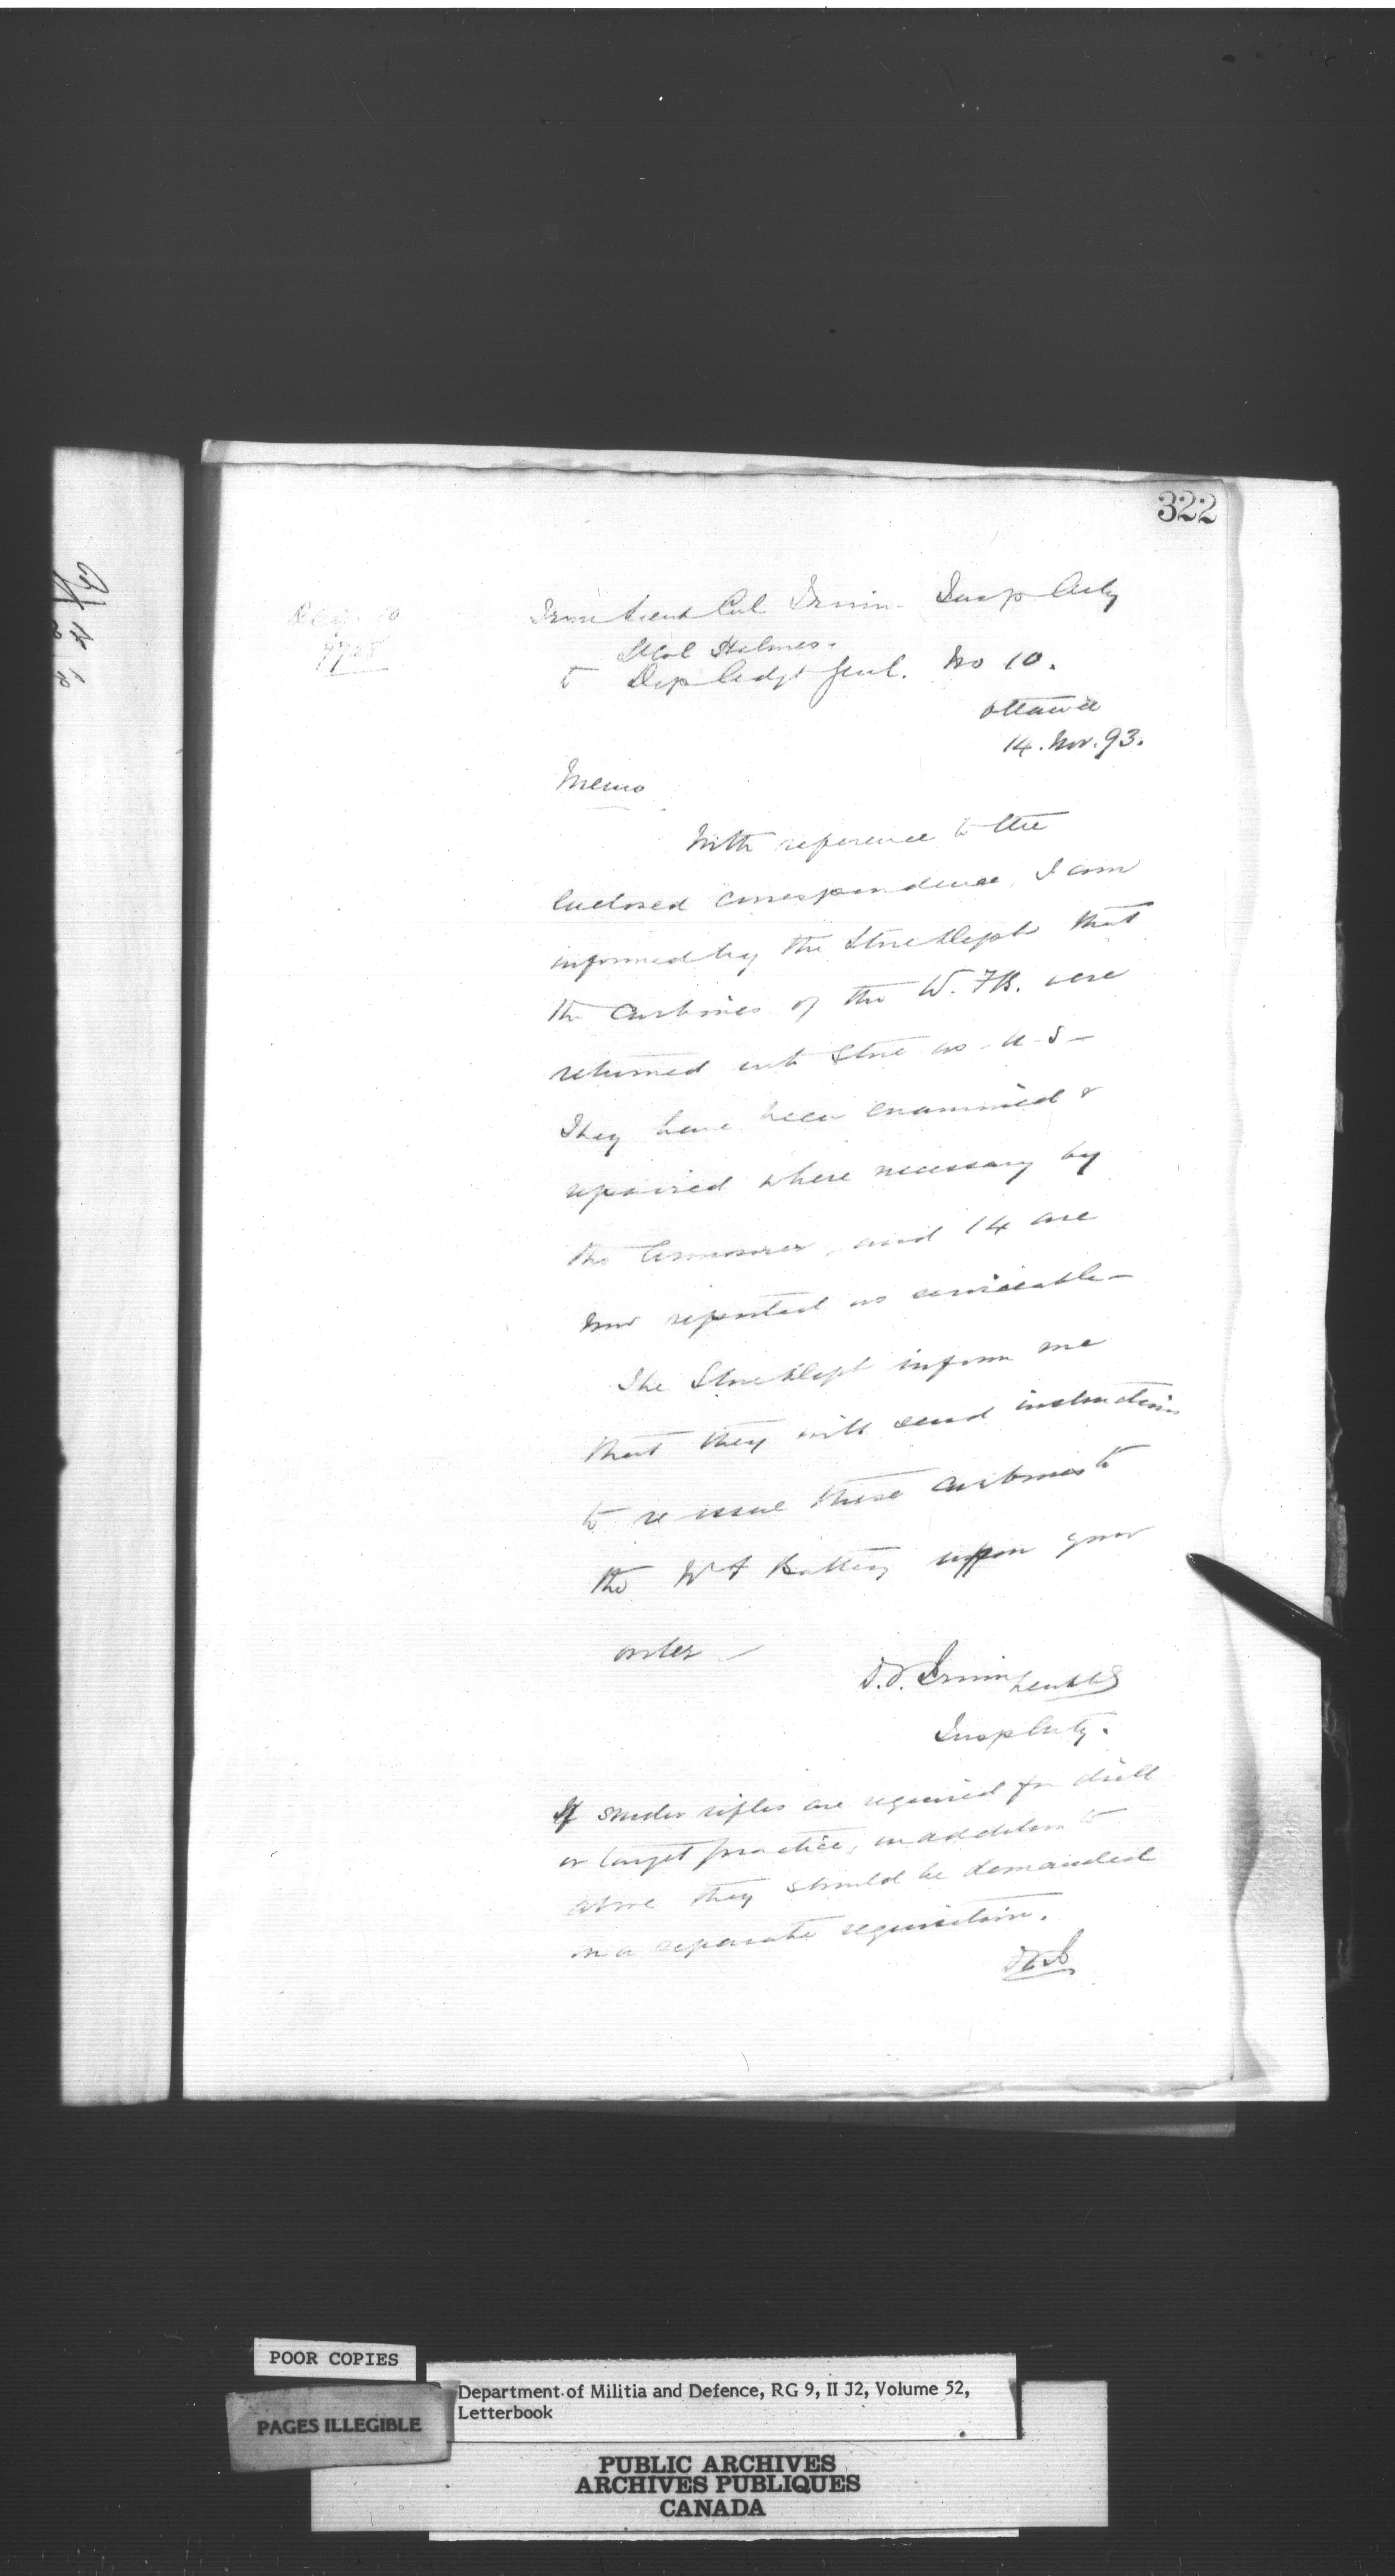 322
From Lieut Col Irwin Insp Arty
Lt Col Holmes.
to Dep Adjt Genl. No 10.
Ottawa
14. Nov. 93.
Memo
With reference to the
enclosed correspondence, I am
informed by the Store Dept that
the carbines of the W. F B. were
returned into store as U.S—
They have been examined &
repaired where necessary by
the Armourer, and 14 are
now reported as serviceable—
The Store Dept inform me
that they will send instructions
to re issue these carbines to
the W F Battery upon your
order—
D. T. Irwin Lieut Col
Insp Arty.
If snider rifles are required for drill
or target practice, in addition to
above they should be demanded
on a separate requisition.
DTI
POOR COPIES
PAGES ILLEGIBLE
Department of Militia and Defence, RG 9, II J2, Volume 52,
Letterbook
PUBLIC ARCHIVES
ARCHIVES PUBLIQUES
CANADA